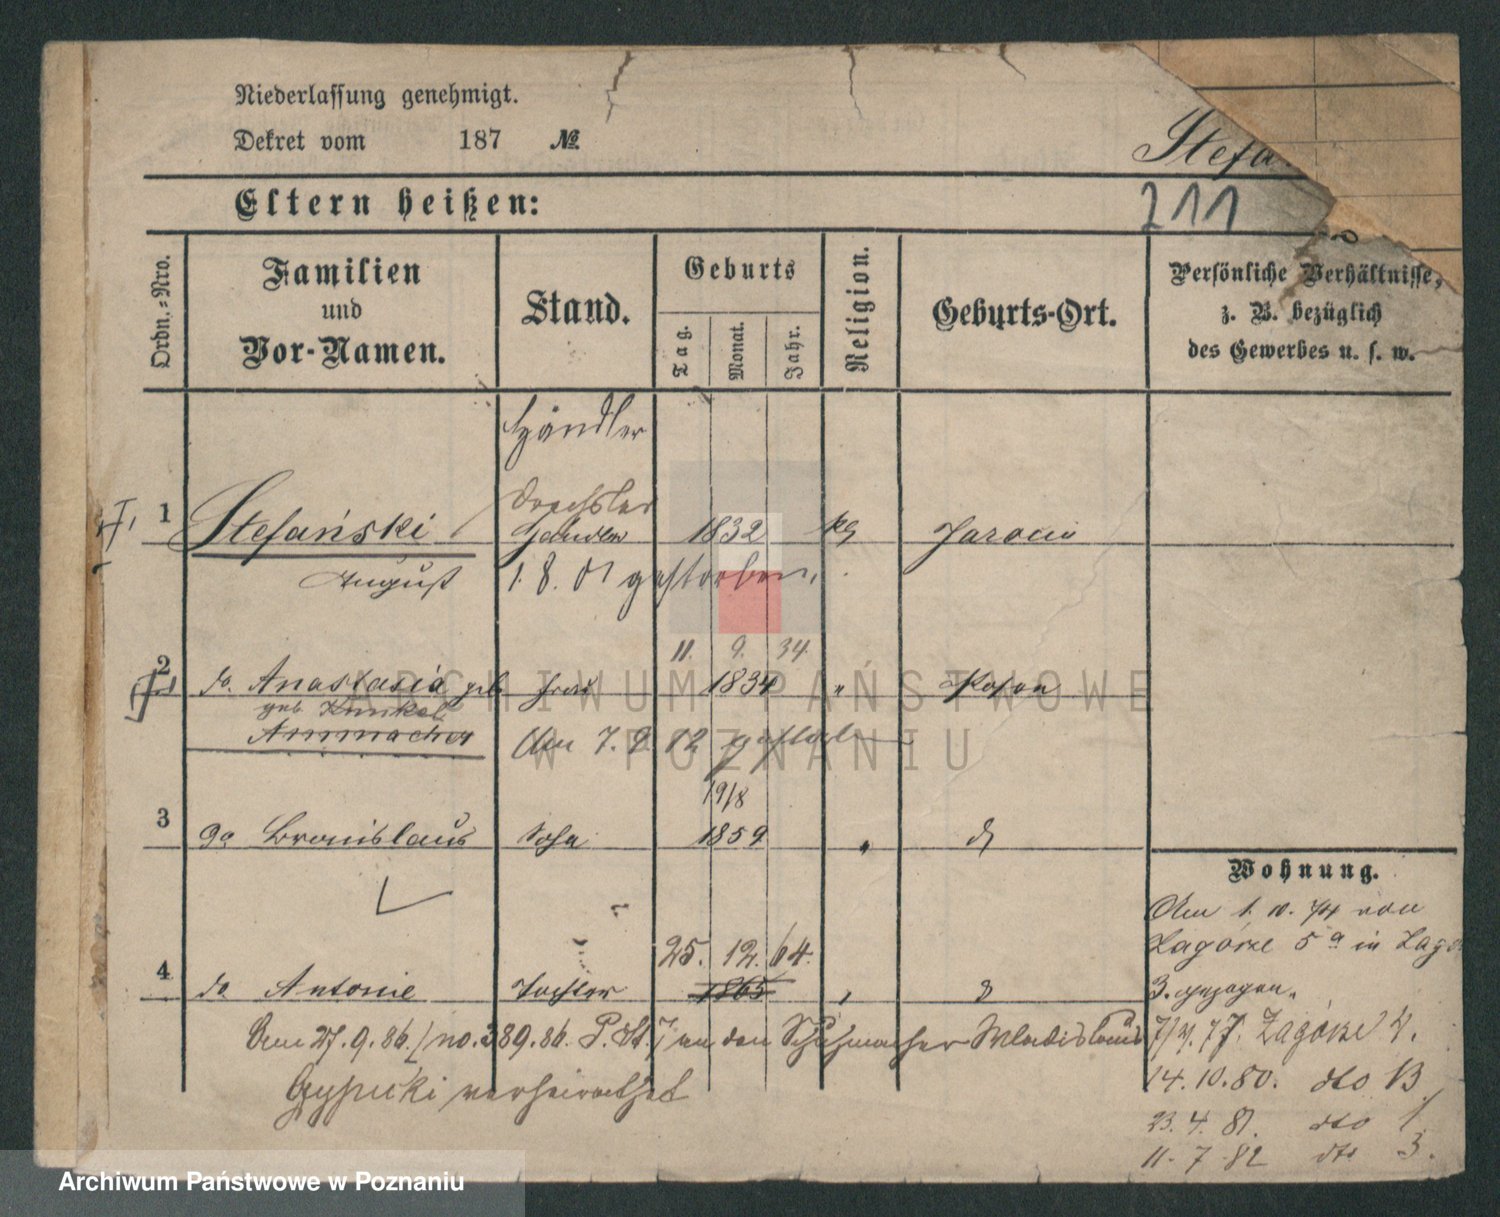 Niederlassung genehmigt.
Dekret vom 187 №
Stefa
Eltern heißen:
211
Ordn.-Nro.
Familien
und
Vor-Namen.
Stand.
Geburts
Tag.
Monat.
Jahr.
Religion.
Geburts-Ort.
Persönliche Verhältnisse,
z. B. bezüglich
des Gewerbes u. s. w.
Händler
Drechsler
1 Stefański 1832 kg Jarocin
August 1. 8. 01 gestorben.
11. 9. 34
2 do. Anastasia geb Frau 1834 " Posen
geb Kunkel
Am 7. 9. 82 gestorben
19/8
3 do Bronislaus Sohn 1859 "
Wohnung.
Am 1. 10. 74 von
Zagórze 5a in Zago
25. 12. 64.
4 do Antonie Tochter 1865
3. gezogen.
Am 27. 9. 86. / no. 389. 86. P. St. / an den Schuhmacher Wladislaus
verheirathet
77. Zagórze 4.
14. 10. 80. dto 13
23. 4. 81. dto 1
11. 7. 82 dto 3.
ARCHIWUM PAŃSTWOWE
W POZNANIU
Archiwum Państwowe w Poznaniu